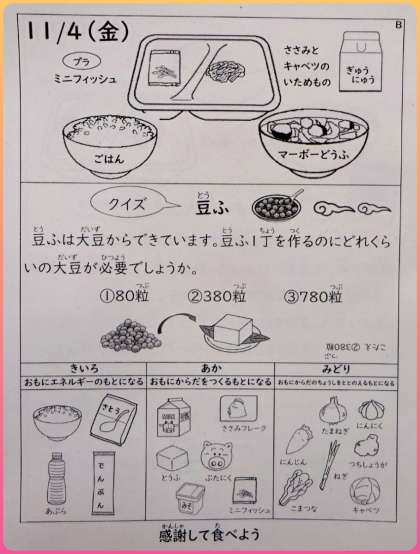 11/4(金)
B
プラ
ミニフィッシュ
ささみと
キャベツの
いためもの
ぎゅう
にゅう
ごはん
マーボーどうふ
クイズ
豆ふ
とう
豆ふは大豆からできています。豆ふ1丁を作るのにどれくら
とう だいず とう ちょう つく
いの大豆が必要でしょうか。
だいず ひつよう
①80粒 ②380粒 ③780粒
つぶ つぶ つぶ
こたえ ②380粒
つぶ
きいろ
おもにエネルギーのもとになる
さとう
あぶら
でんぷん
あか
おもにからだをつくるもとになる
ささみフレーク
とうふ
ぶたにく
みそ
ミニフィッシュ
みどり
おもにからだのちょうしをととのえるもとになる
たまねぎ
にんにく
にんじん
ねぎ
つちしょうが
こまつな
キャベツ
感謝して食べよう
かんしゃ た